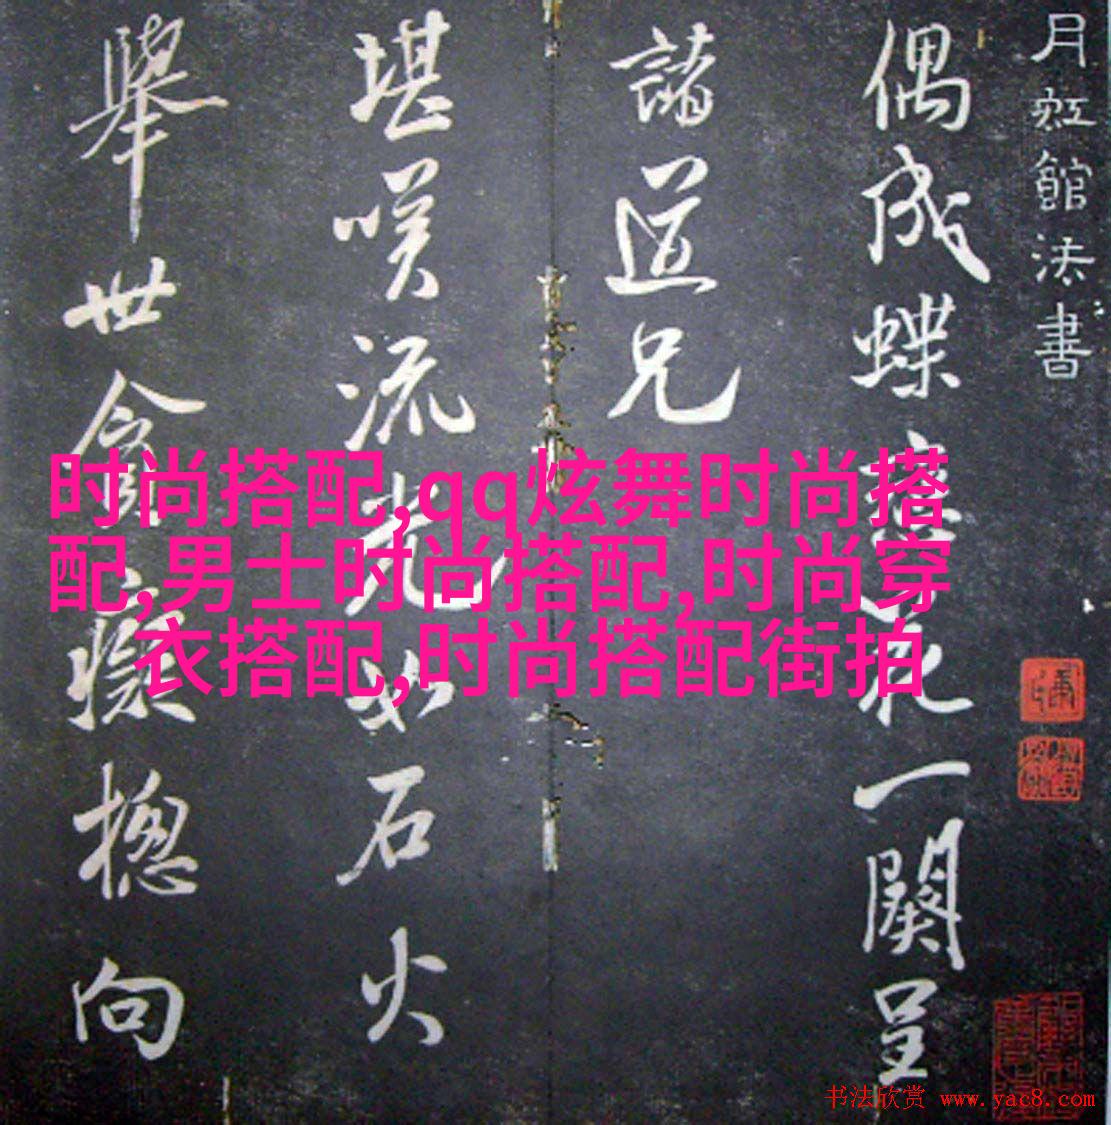 月虹館法書
偶成蝶戀花一闋呈
諸道兄
堪咲流光如石火
舉世貪癡摠向
时尚搭配,qq炫舞时尚搭
配,男士时尚搭配,时尚穿
衣搭配,时尚搭配街拍
书法欣赏 www.yac8.com